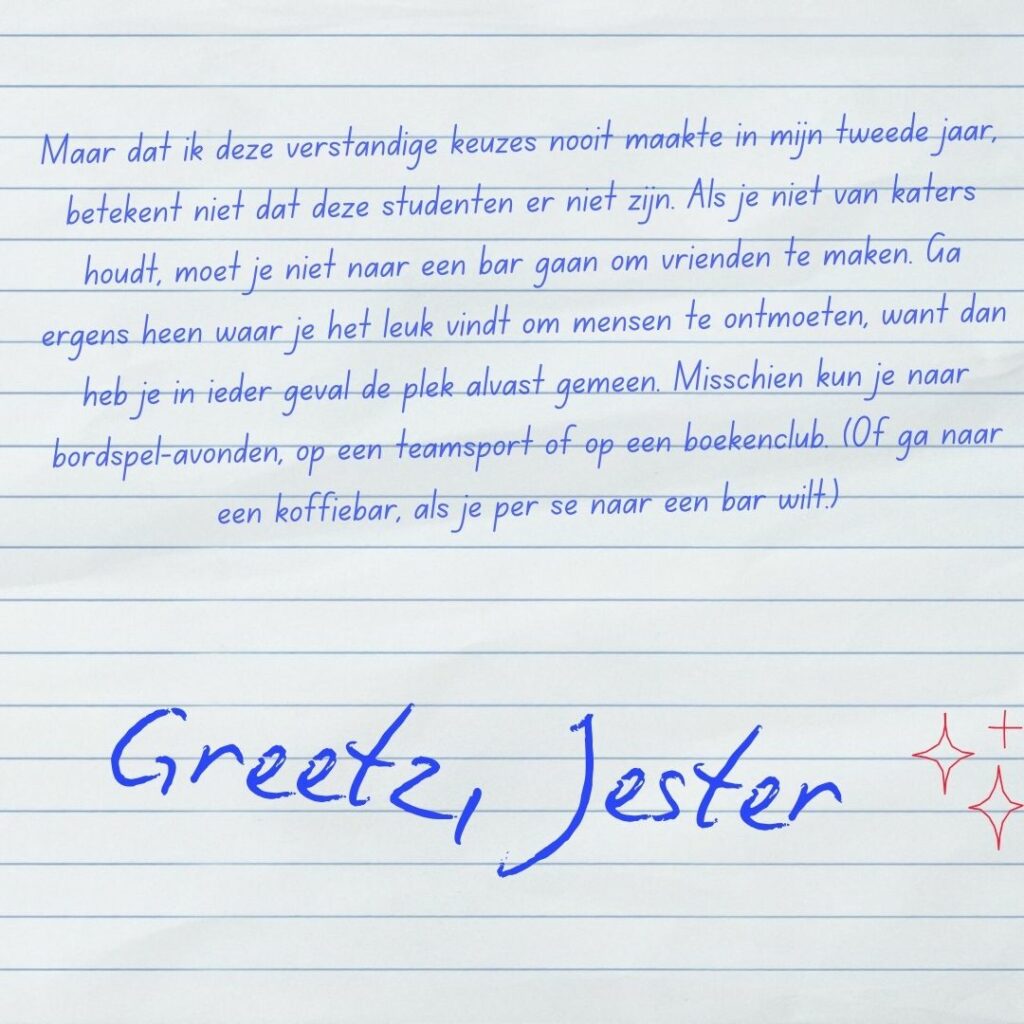 Maar dat ik deze verstandige keuzes nooit maakte in mijn tweede jaar,
betekent niet dat deze studenten er niet zijn. Als je niet van katers
houdt, moet je niet naar een bar gaan om vrienden te maken. Ga
ergens heen waar je het leuk vindt om mensen te ontmoeten, want dan
heb je in ieder geval de plek alvast gemeen. Misschien kun je naar
bordspel-avonden, op een teamsport of op een boekenclub. (Of ga naar
een koffiebar, als je per se naar een bar wilt.)
Greetz, Jester